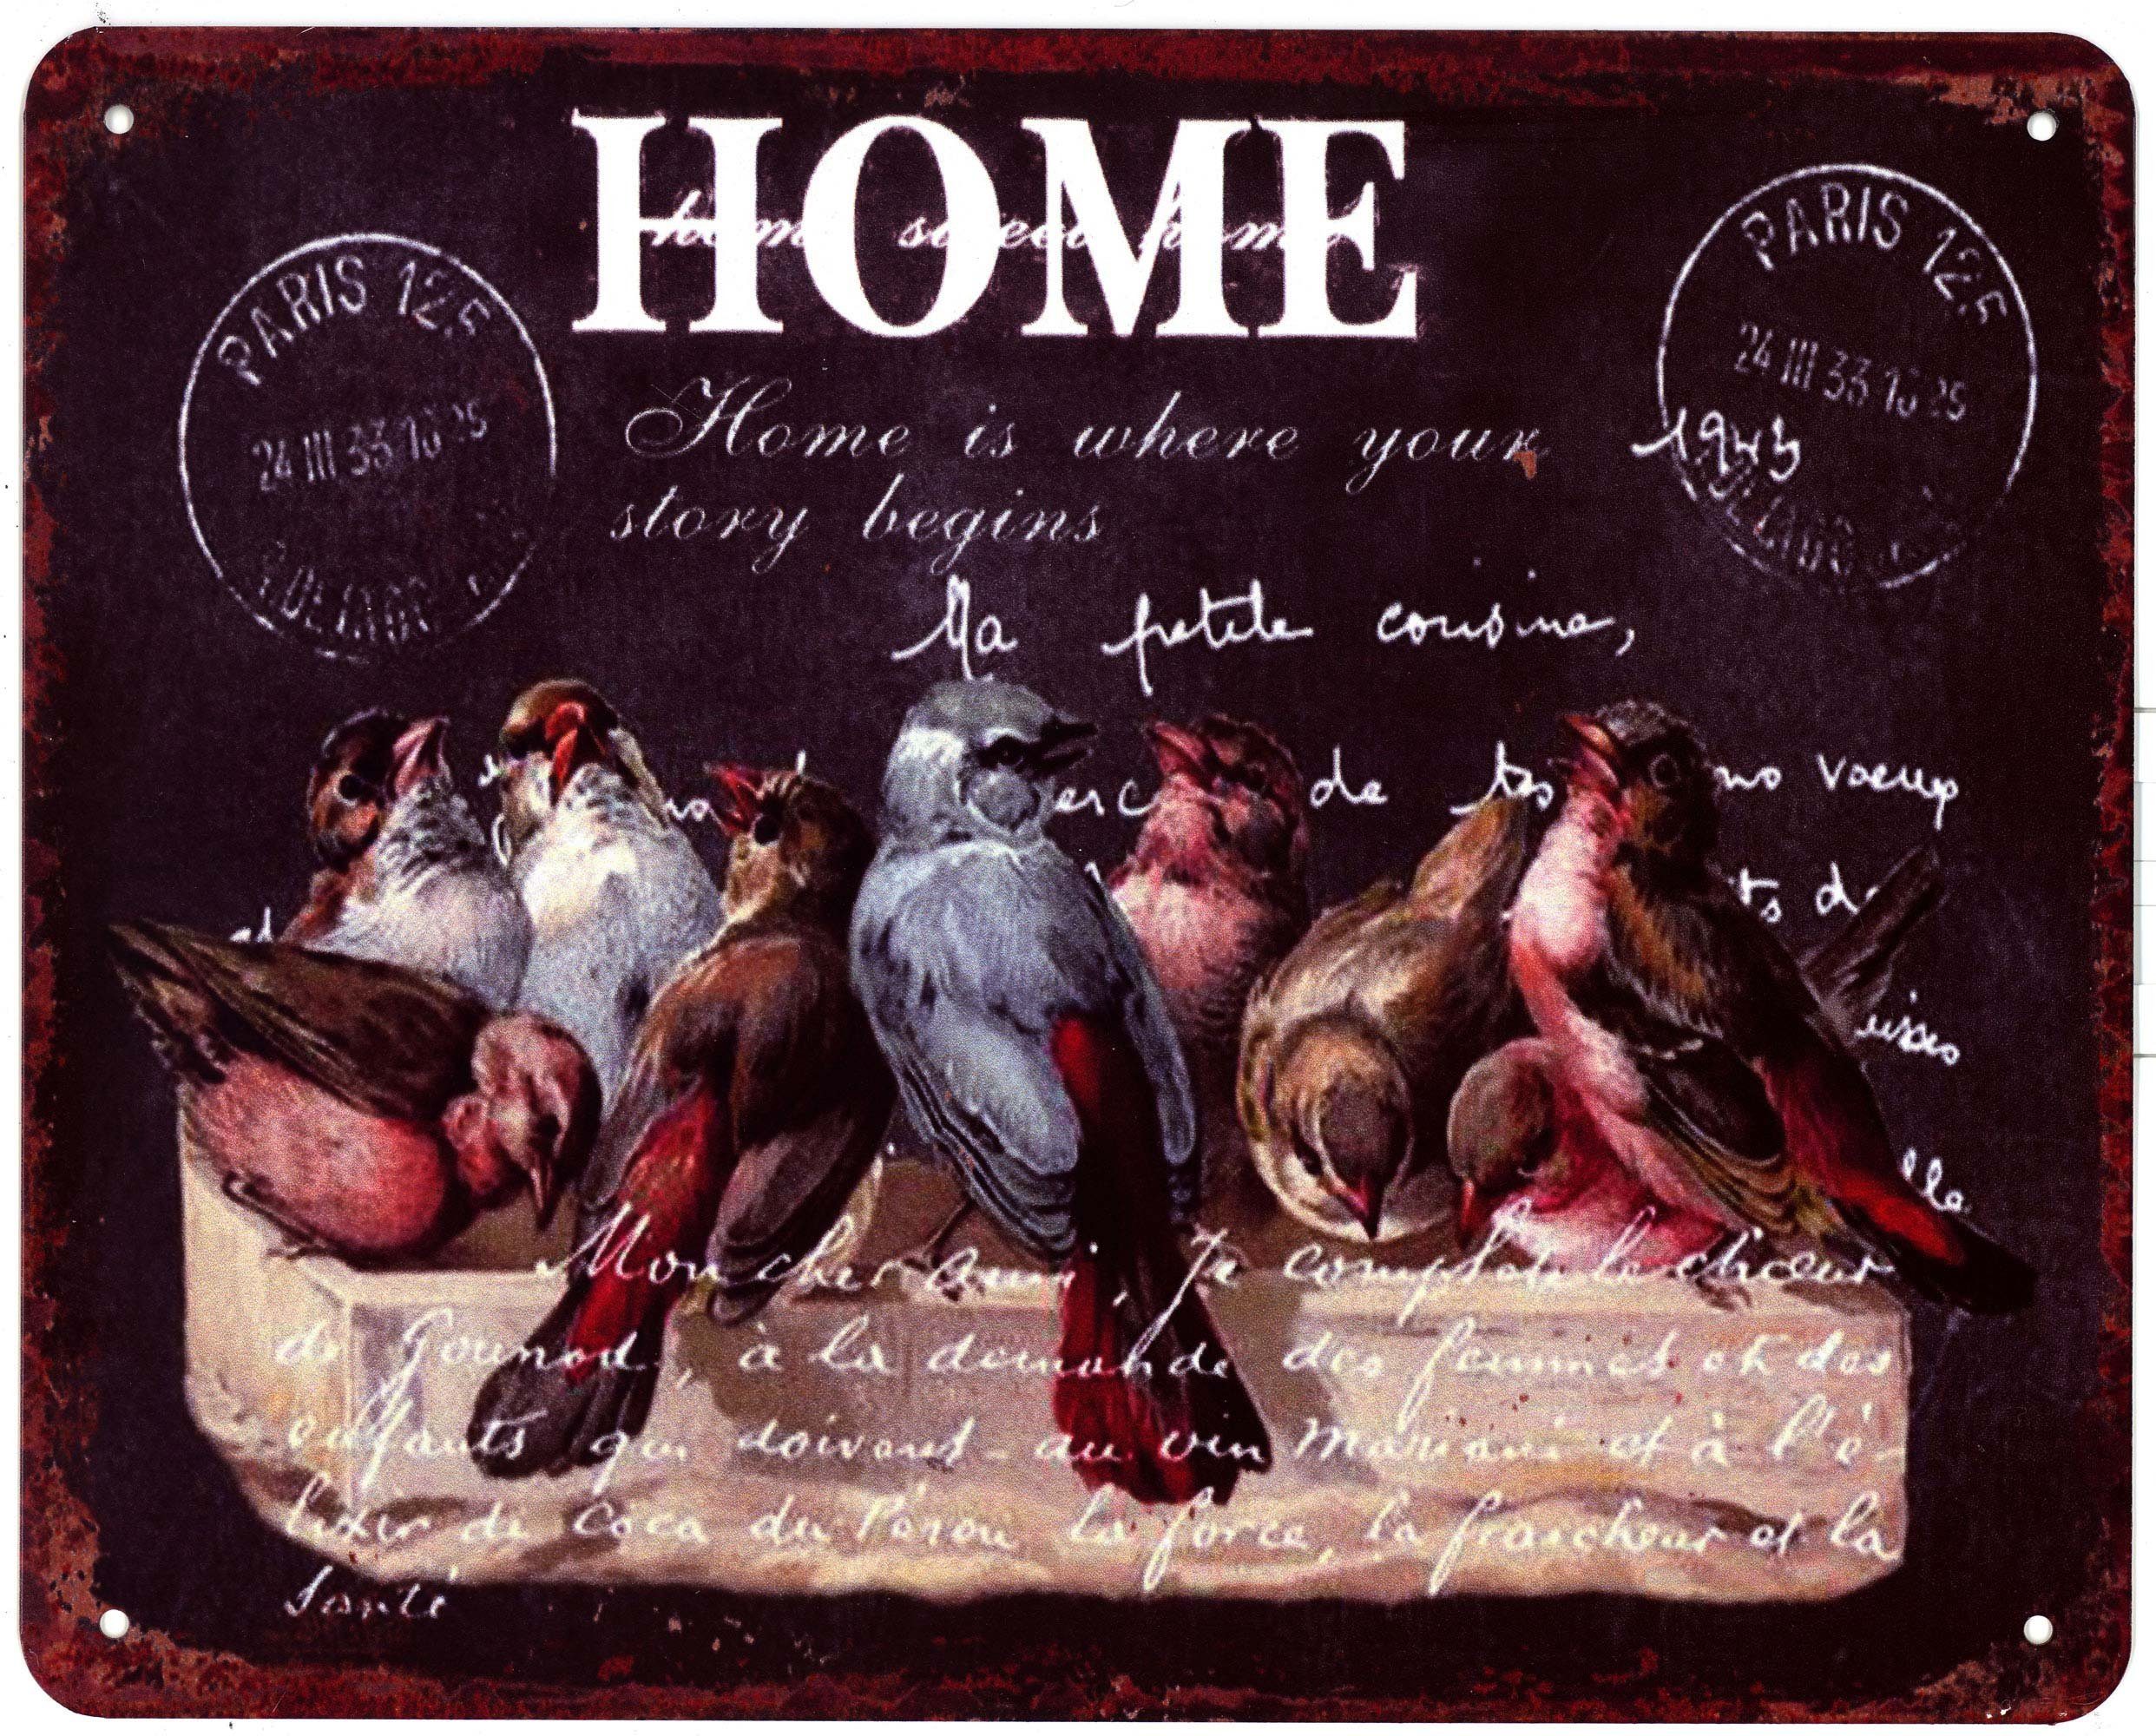 HOME
home sweet home
PARIS 125
24 III 33
PARIS 125
24 III 33
Home is where your
1943
story begins
Ma petite cousine,
de tes vœux
Mon cher Ami, Je complète le chœur
de Gounod, à la demande des femmes et des
enfants qui doivent au vin Mariani et à l'é-
lixir de Coca du Pérou la force, la fraicheur et la
Santé